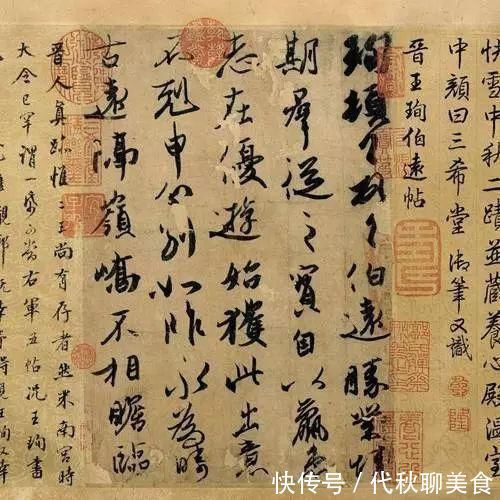 快雪中秋二蹟並藏養心殿温室
中顏曰三希堂御筆又識
晉王珣伯遠帖
珣頓首頓首伯遠勝業情
期羣從之寶自以羸患
志在優遊始獲此出意
不剋申分別如昨永為疇
古遠隔嶺嶠不相瞻臨
晉人真跡惟二王尚有存者然米南宮時
大令已罕謂一紙可當右軍五帖況王珣書
難覯耶既幸予得見王珣又幸
快传号 / 代秋聊美食